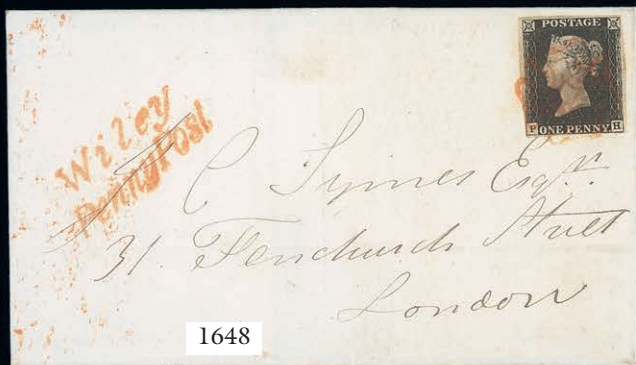 POSTAGE
P ONE PENNY H
Wiley
Penny Post
C Symes Esqr.
31. Fenchurch Street
London
1648